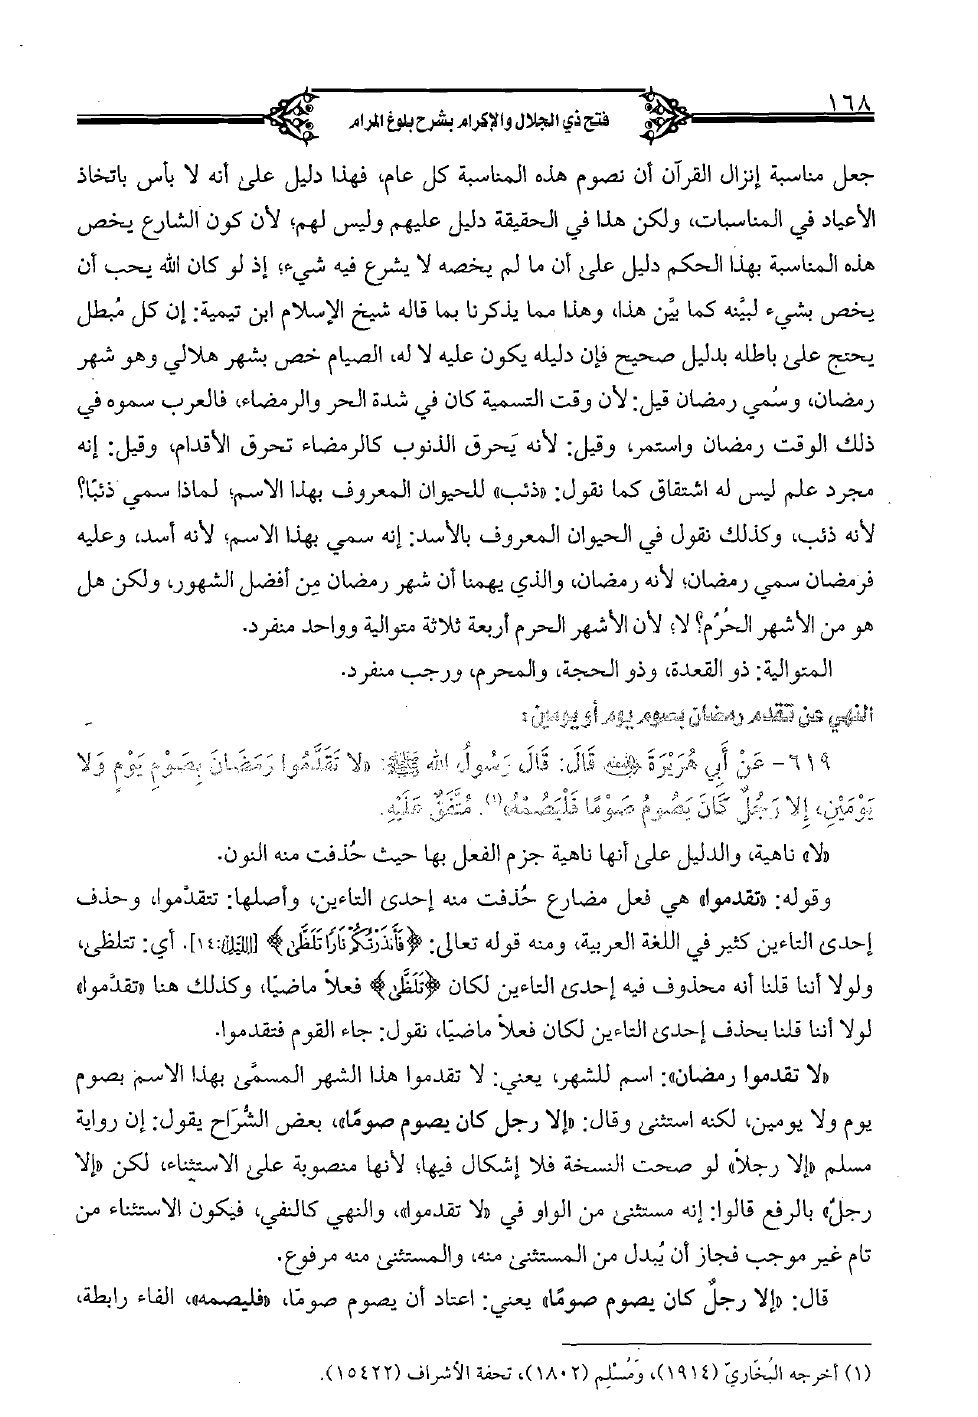 ١٦٨
فتح ذي الجلال والإكرام بشرح بلوغ المرام
جعل مناسبة إنزال القرآن أن نصوم هذه المناسبة كل عام، فهذا دليل على أنه لا بأس باتخاذ
الأعياد في المناسبات، ولكن هذا في الحقيقة دليل عليهم وليس لهم؛ لأن كون الشارع يخص
هذه المناسبة بهذا الحكم دليل على أن ما لم يخصه لا يشرع فيه شيء؛ إذ لو كان الله يحب أن
يخص بشيء لبيَّنه كما بيَّن هذا، وهذا مما يذكرنا بما قاله شيخ الإسلام ابن تيمية: إن كل مُبطل
يحتج على باطله بدليل صحيح فإن دليله يكون عليه لا له، الصيام خص بشهر هلالي وهو شهر
رمضان، وسُمي رمضان قيل: لأن وقت التسمية كان في شدة الحر والرمضاء، فالعرب سموه في
ذلك الوقت رمضان واستمر، وقيل: لأنه يَحرق الذنوب كالرمضاء تحرق الأقدام، وقيل: إنه
مجرد علم ليس له اشتقاق كما نقول: «ذئب» للحيوان المعروف بهذا الاسم؛ لماذا سمي ذئبًا؟
لأنه ذئب، وكذلك نقول في الحيوان المعروف بالأسد: إنه سمي بهذا الاسم؛ لأنه أسد، وعليه
فرمضان سمي رمضان؛ لأنه رمضان، والذي يهمنا أن شهر رمضان مِن أفضل الشهور، ولكن هل
هو من الأشهر الحُرُم؟ لا؛ لأن الأشهر الحرم أربعة ثلاثة متوالية وواحد منفرد.
المتوالية: ذو القعدة، وذو الحجة، والمحرم، ورجب منفرد.
النهي عن تقدم رمضان بصوم يوم أو يومين:
٦١٩- عَنْ أَبِي هُرَيْرَةَ رضي الله عنه قَالَ: قَالَ رَسُولُ الله ﷺ: «لا تَقَدَّمُوا رَمَضَانَ بِصَوْمِ يَوْمٍ وَلَا
يَوْمَيْنِ، إِلا رَجُلٌ كَانَ يَصُومُ صَوْمًا فَلْيَصُمْهُ»(١). مُتَّفَقٌ عَلَيْهِ.
«لا» ناهية، والدليل على أنها ناهية جزم الفعل بها حيث حُذفت منه النون.
وقوله: «تقدموا» هي فعل مضارع حُذفت منه إحدى التاءين، وأصلها: تتقدَّموا، وحذف
إحدى التاءين كثير في اللغة العربية، ومنه قوله تعالى: ﴿فَأَنذَرْتُكُمْ نَارًا تَلَظَّىٰ﴾ [الليل:١٤]. أي: تتلظى،
ولولا أننا قلنا أنه محذوف فيه إحدى التاءين لكان ﴿تَلَظَّىٰ﴾ فعلاً ماضيًا، وكذلك هنا «تقدَّموا»
لولا أننا قلنا بحذف إحدى التاءين لكان فعلاً ماضيًا، نقول: جاء القوم فتقدموا.
«لا تقدموا رمضان»: اسم للشهر، يعني: لا تقدموا هذا الشهر المسمَّى بهذا الاسم بصوم
يوم ولا يومين، لكنه استثنى وقال: «إلا رجل كان يصوم صومًا»، بعض الشُّرَّاح يقول: إن رواية
مسلم «إلا رجلاً» لو صحت النسخة فلا إشكال فيها؛ لأنها منصوبة على الاستثناء، لكن «إلا
رجلٌ» بالرفع قالوا: إنه مستثنى من الواو في «لا تقدموا»، والنهي كالنفي، فيكون الاستثناء من
تام غير موجب فجاز أن يُبدل من المستثنى منه، والمستثنى منه مرفوع.
قال: «إلا رجلٌ كان يصوم صومًا» يعني: اعتاد أن يصوم صومًا، «فليصمه»، الفاء رابطة،
(١) أخرجه البُخَاريّ (١٩١٤)، وَمُسْلِم (١٨٠٢)، تحفة الأشراف (١٥٤٢٢).